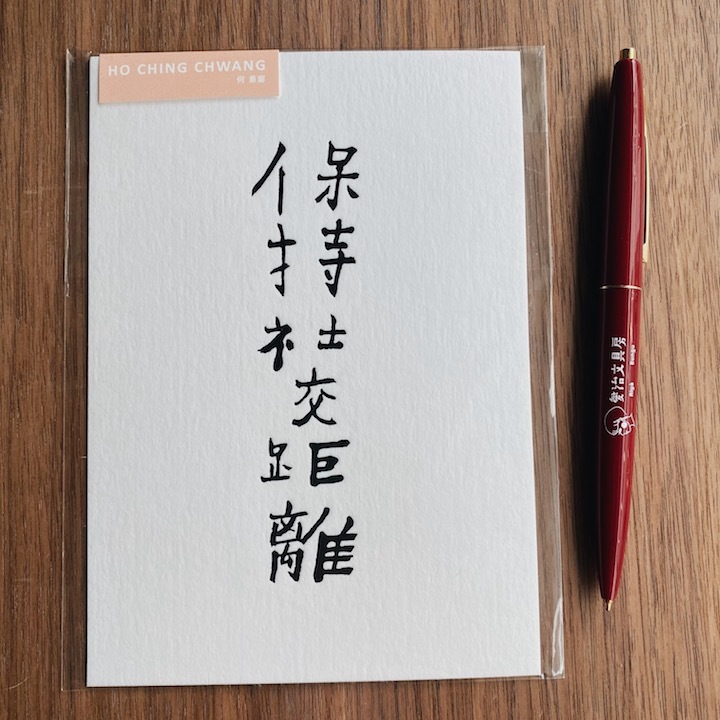 HO CHING CHWANG
何 景窗
保持社交距離
愛治文具房
Bungu